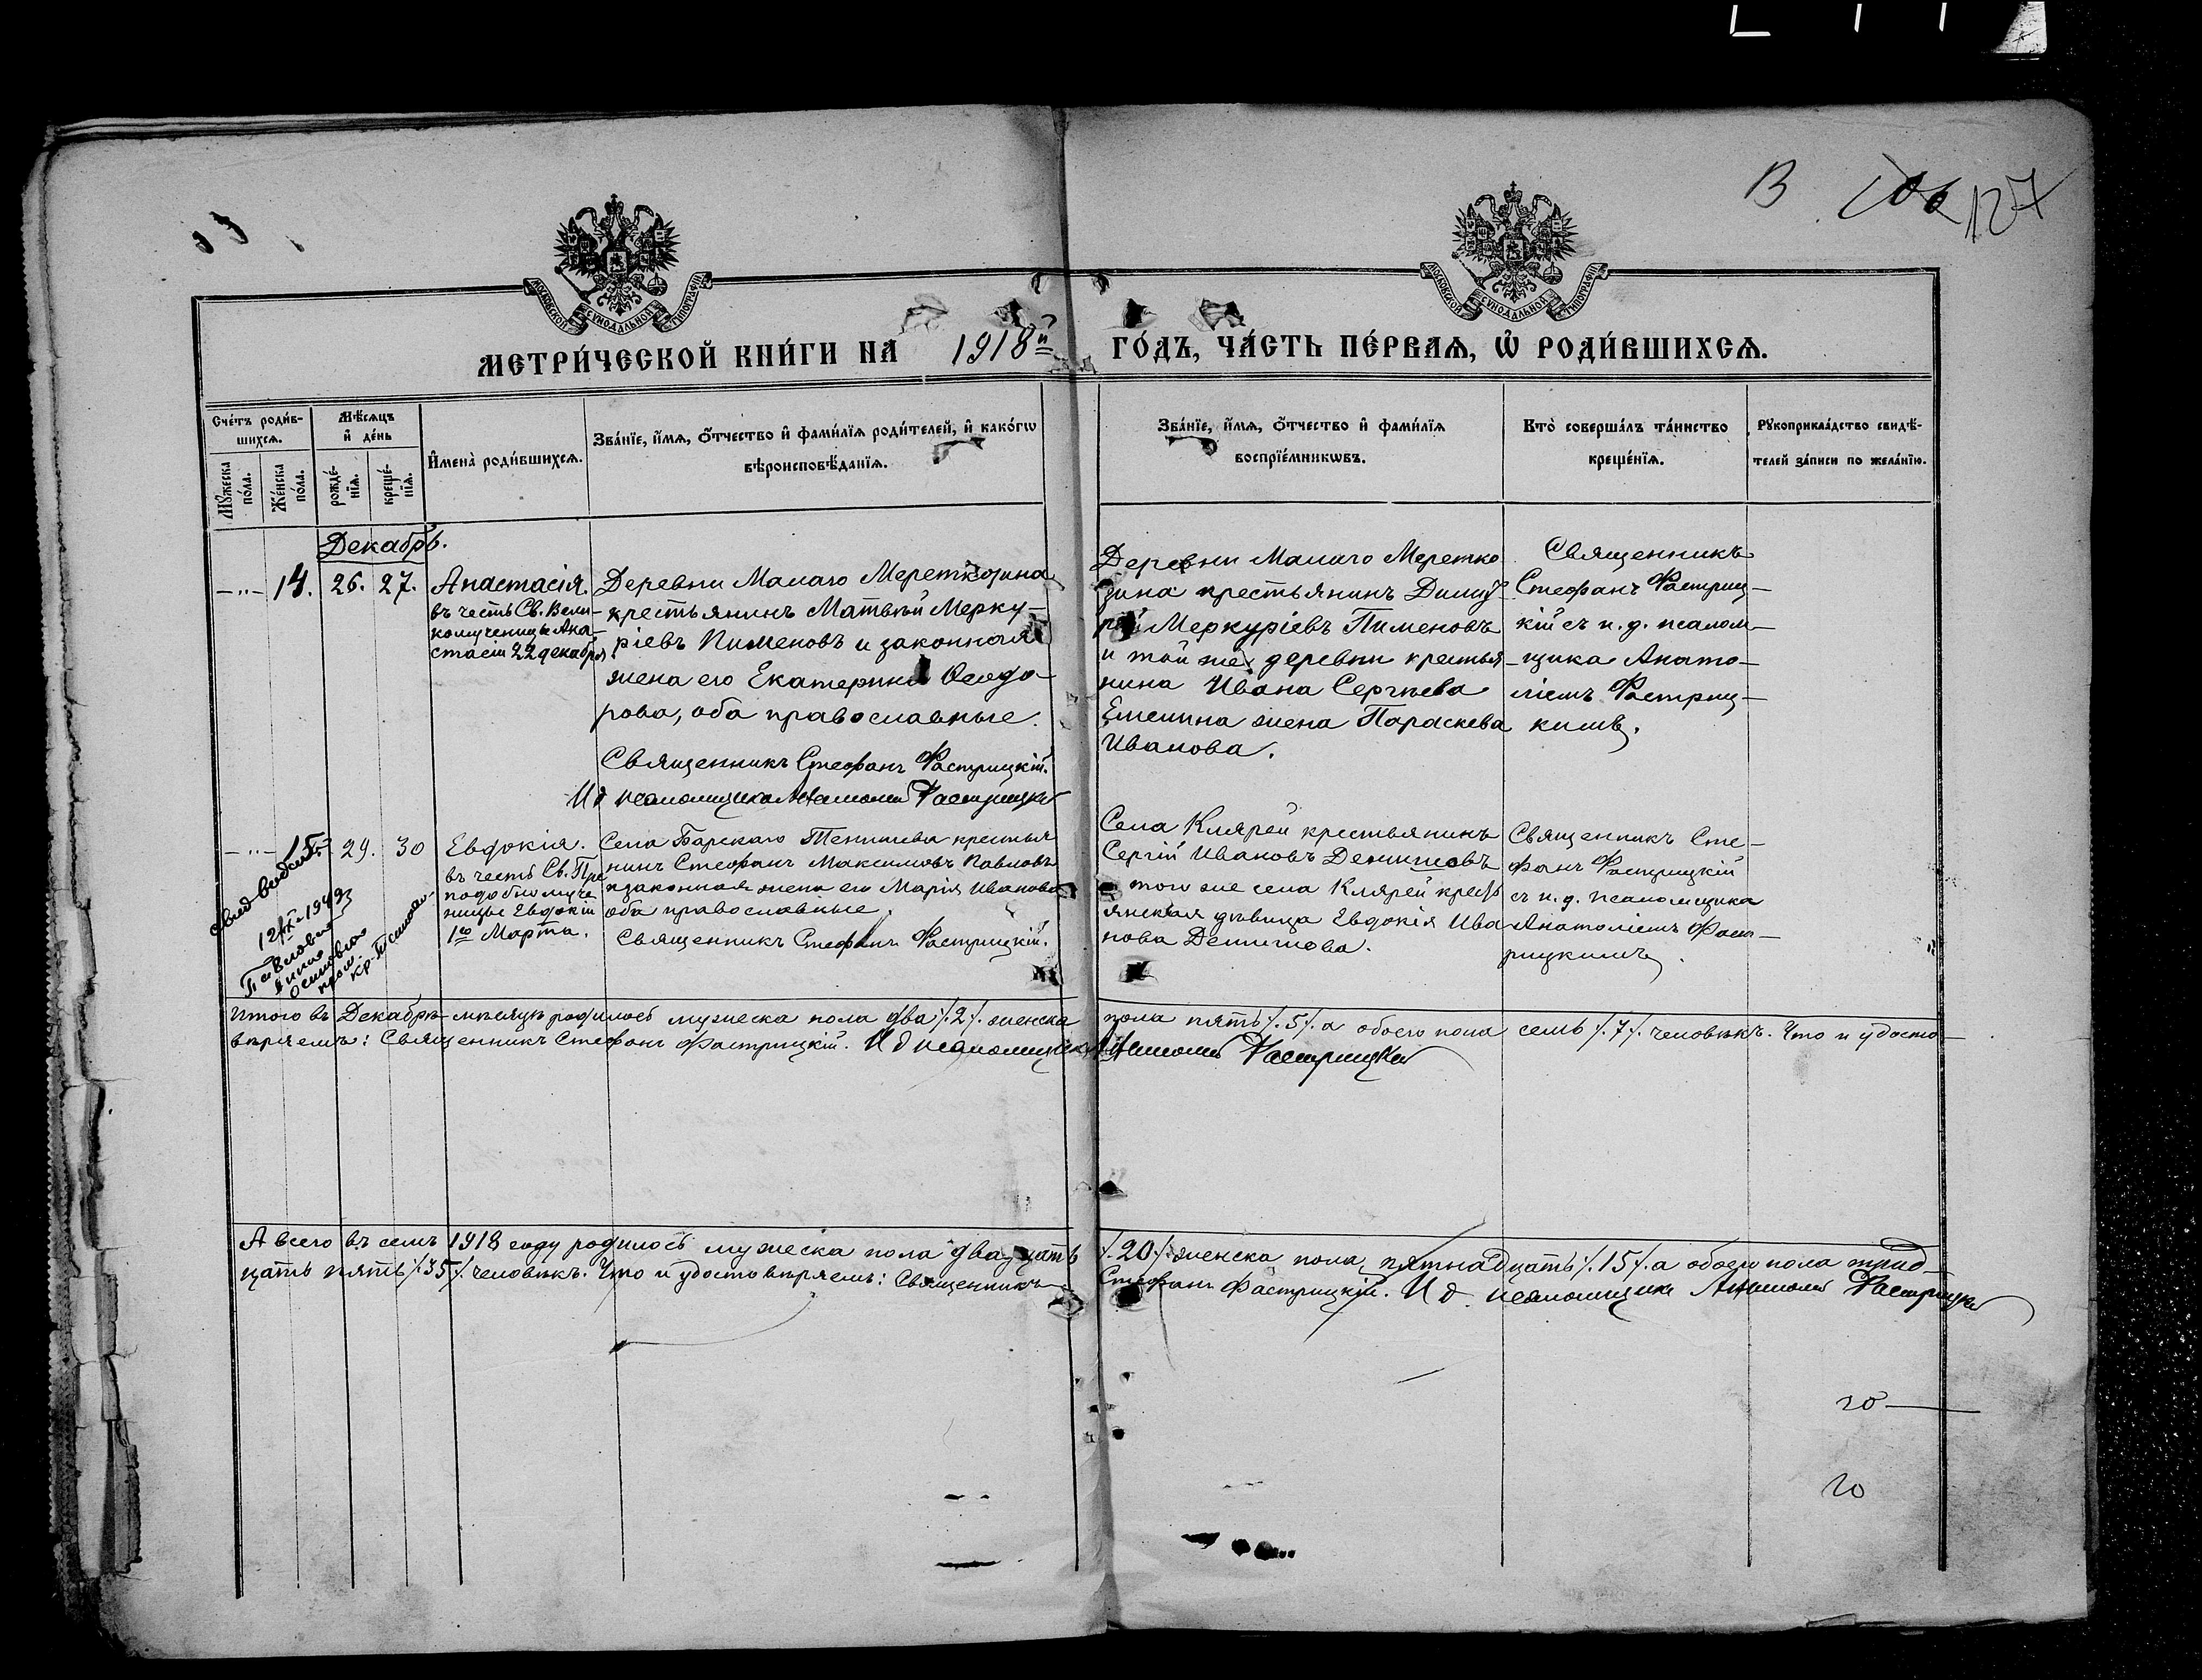 В 106 127
МОСКОВСКОЙ СУНОДАЛЬНОЙ ТИПОГРАФІИ
МОСКОВСКОЙ СУНОДАЛЬНОЙ ТИПОГРАФІИ
МЕТРИ́ЧЕСКОЙ КНИ́ГИ НА 1918й ГО́ДЪ, ЧА́СТЬ ПЕ́РВАѦ, Ѡ҆ РОДИ́ВШИХСѦ.
Сче́тъ роди́в-
шихсѧ.
Мꙋ́жеска по́ла.
Же́нска по́ла.
Мѣ́сѧцъ
и҆ де́нь
рожде́-
нїѧ.
креще́-
нїѧ.
И҆мена̀ роди́вшихсѧ.
Зва́нїе, и҆́мѧ, ѻ҆́тчество и҆ фами́лїѧ роди́телей, и҆ како́гѡ
вѣроисповѣ́данїѧ.
Зва́нїе, и҆́мѧ, ѻ҆́тчество и҆ фами́лїѧ
воспрїе́мникѡвъ.
Кто̀ соверша́лъ та́инство
креще́нїѧ.
Рꙋкоприкла́дство свидѣ́-
телей за́писи по жела́нїю.
Декабрь.
—"— 14. 26. 27. Анастасія.
въ честь Св. Вели-
комученицы Ана-
стасіи 22 декабря.
Деревни Малаго Мереткозина
крестьянинъ Матвѣй Мерку-
ріевъ Пименовъ и законная
жена его Екатерина Ѳеодо-
рова, оба православные.
Священникъ Стефанъ Фастрицкій.
И д псаломщика Анатолій Фастрицкій
Деревни Малаго Меретко
зина крестьянинъ Димит
рій Меркуріевъ Пименовъ
и той же деревни крестья-
нина Ивана Сергѣева
Емелина жена Параскева
Иванова.
Священникъ
Стефанъ Фастриц-
кій съ и. д. псалом-
щика Анато-
ліемъ Фастриц-
кимъ.
—"— 15. 29. 30 Евдокія.
въ честь Св. Пре
подобномуче
ницы Евдокіи
1го Марта.
Села Барскаго Тенишева крестья
нинъ Стефанъ Максимовъ Павловъ
и законная жена его Марія Иванова
оба православные.
Священникъ Стефанъ Фастрицкій.
Села Клярей крестьянинъ
Сергій Ивановъ Демишовъ
и того же села Клярей кресть
янская дѣвица Евдокія Ива
нова Демишова.
Священникъ Сте-
фанъ Фастрицкій
съ и. д. псаломщика
Анатоліемъ Фаст-
рицкимъ.
1949
Итого въ Декабрѣ мѣсяцѣ родилось мужеска пола два %2% женска пола пять %5% а обоего пола семь %7% человѣкъ. Что и удосто-
вѣряемъ: Священникъ Стефанъ Фастрицкій. И д псаломщика Анатолій Фастрицкій
А всего въ семъ 1918 году родилось мужеска пола двадцать %20% женска пола пятнадцать %15% а обоего пола трид-
цать пять %35% человѣкъ. Что и удостовѣряемъ: Священникъ Стефанъ Фастрицкій. И д. псаломщика Анатолій Фастрицкій
20
20